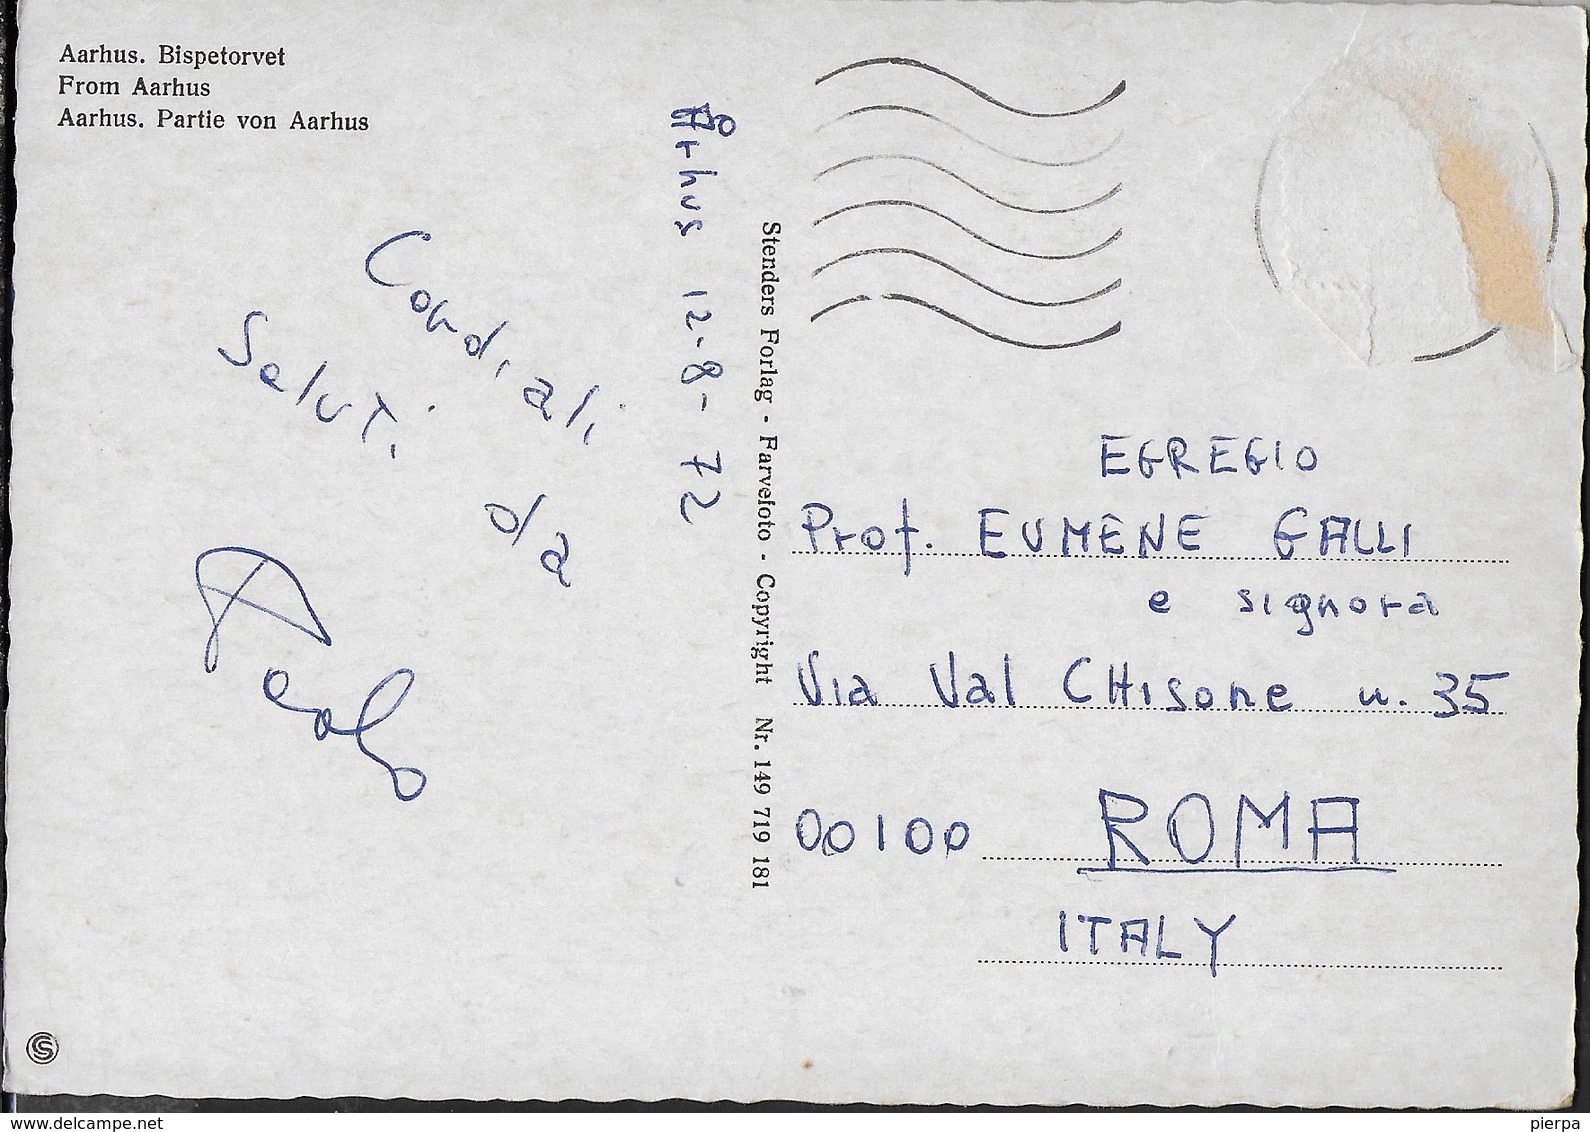 Aarhus. Bispetorvet
From Aarhus
Aarhus. Partie von Aarhus
Århus 12-8-72
Cordiali
Saluti
da
Paolo
Stenders Forlag - Farvefoto - Copyright Nr. 149 719 181
EGREGIO
Prof. EUMENE GALLI
e signora
Via Val CHisone n. 35
00100 ROMA
ITALY
S
www.delcampe.net
pierpa